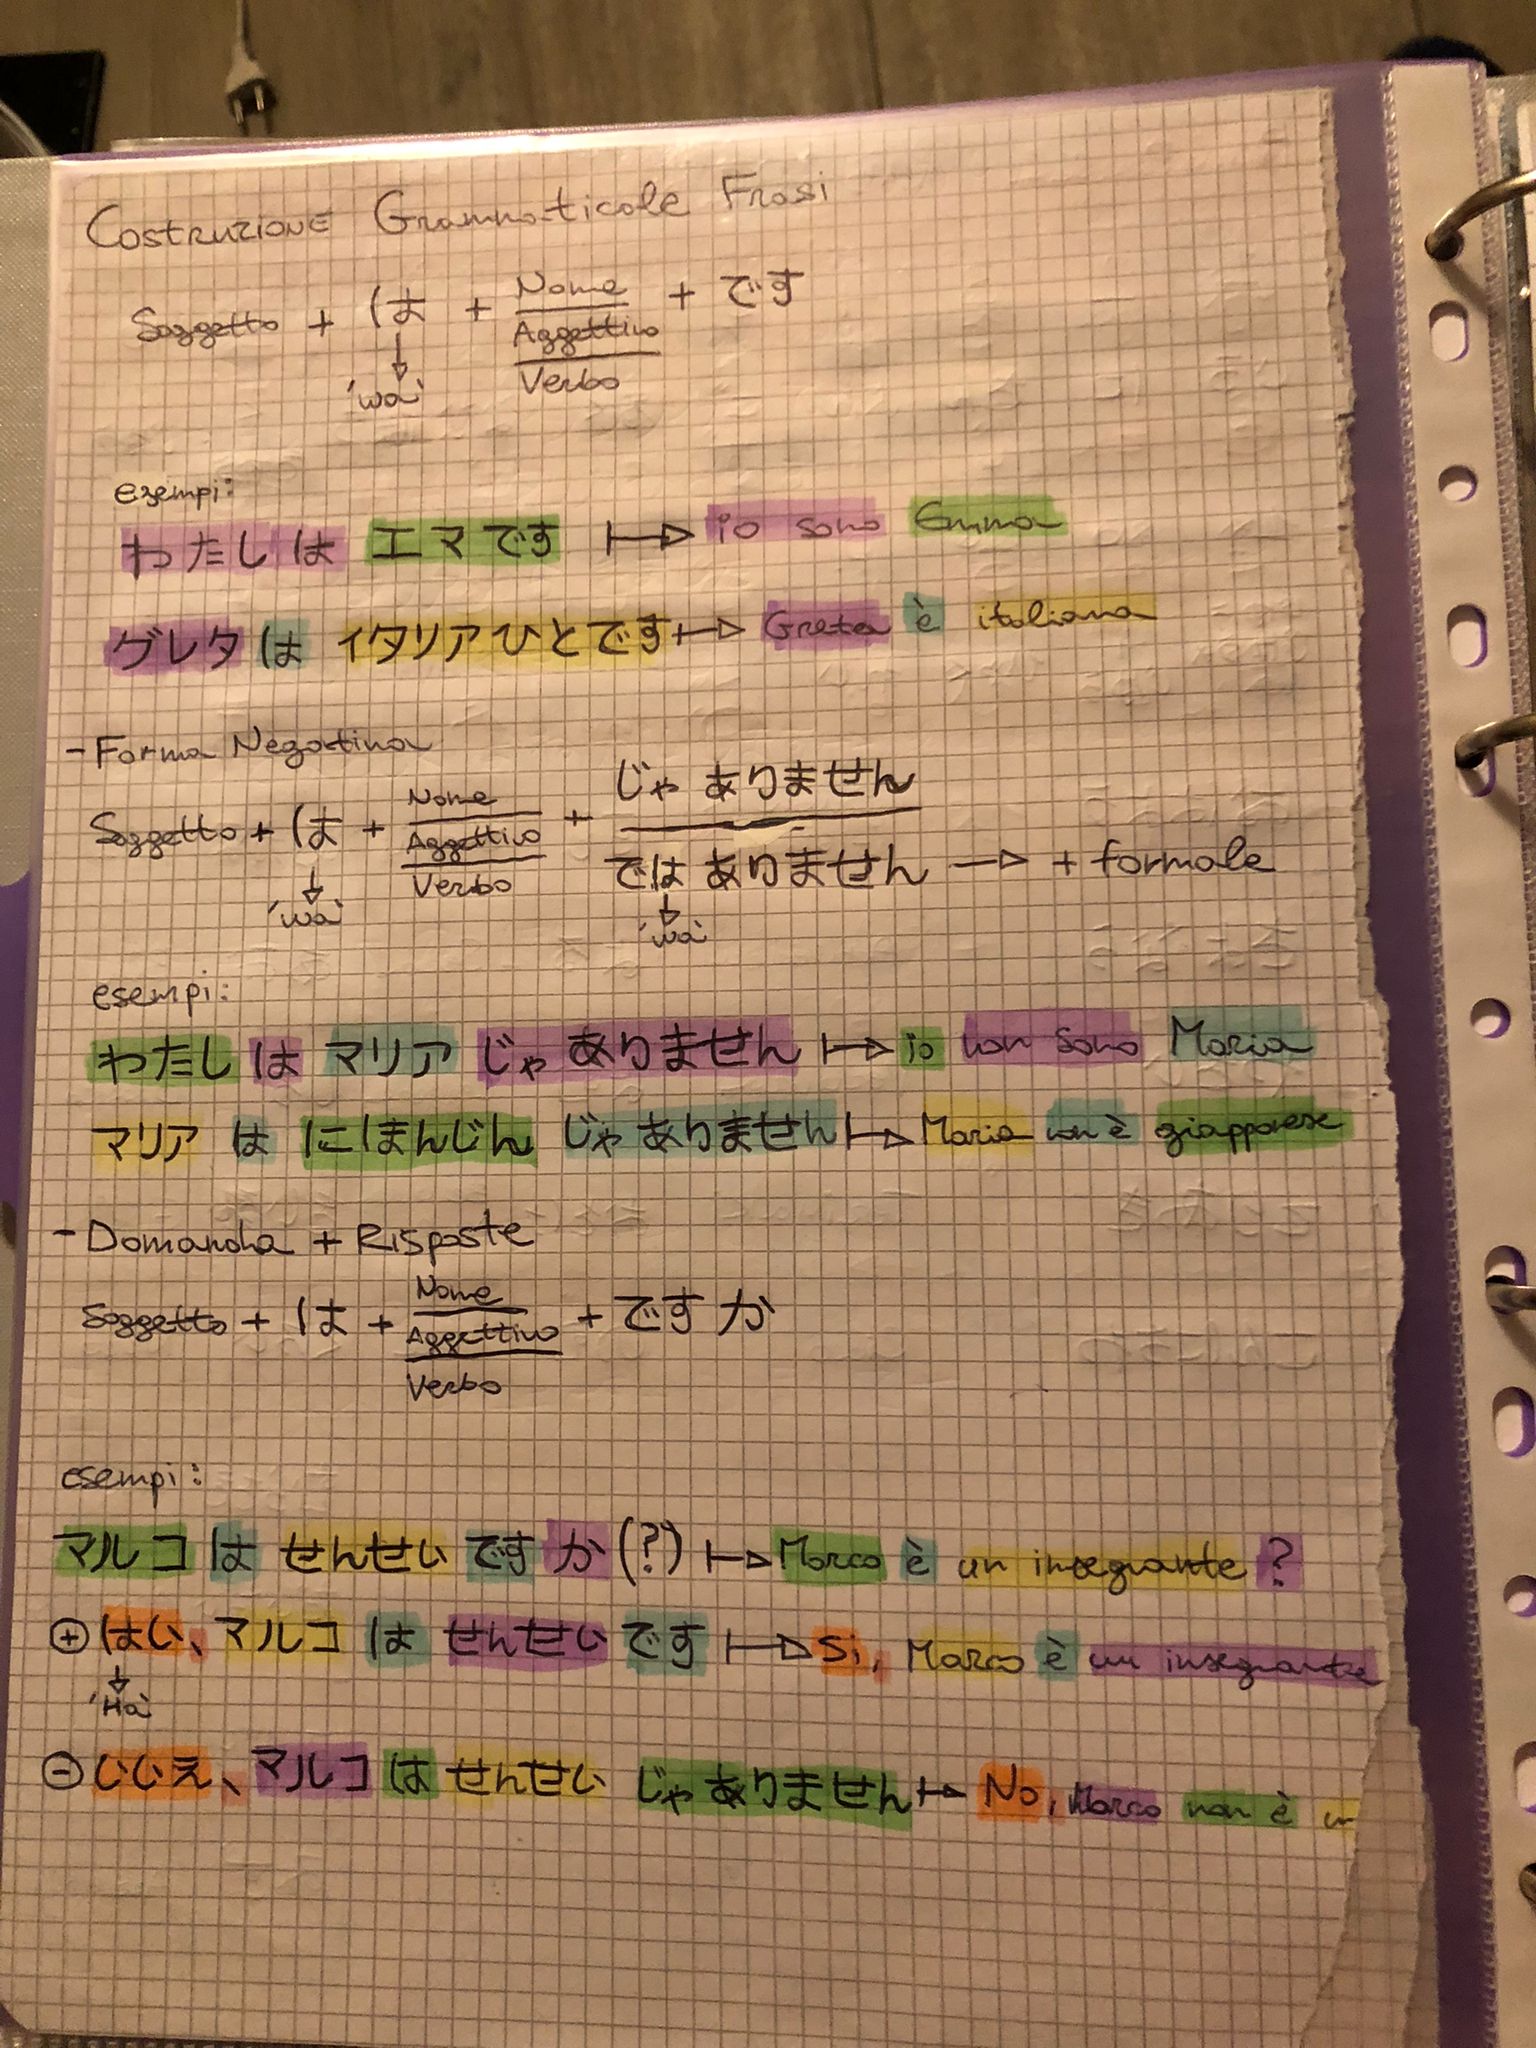 Costruzione Grammaticale Frasi
Soggetto + は + Nome + です
Aggettivo
'wa' Verbo
esempi:
わたしは エマです ↦ io sono Emma
グレタ は イタリアひとです ↦ Greta è italiana
- Forma Negativa
じゃ ありません
Soggetto + は + Nome +
Aggettivo
Verbo
ではありません → + formale
'wa' 'wa'
esempi:
わたし は マリア じゃ ありません ↦ io non sono Maria
マリア は にほんじん じゃ ありません ↦ Maria non è giapponese
- Domanda + Risposte
Soggetto + は + Nome + です か
Aggettivo
Verbo
esempi:
マルコ は せんせい です か (?) ↦ Marco è un insegnante ?
⊕ はい、マルコ は せんせい です ↦ Si, Marco è un insegnante
'Ha'
⊖ いいえ、マルコ は せんせい じゃ ありません ↦ No, Marco non è un